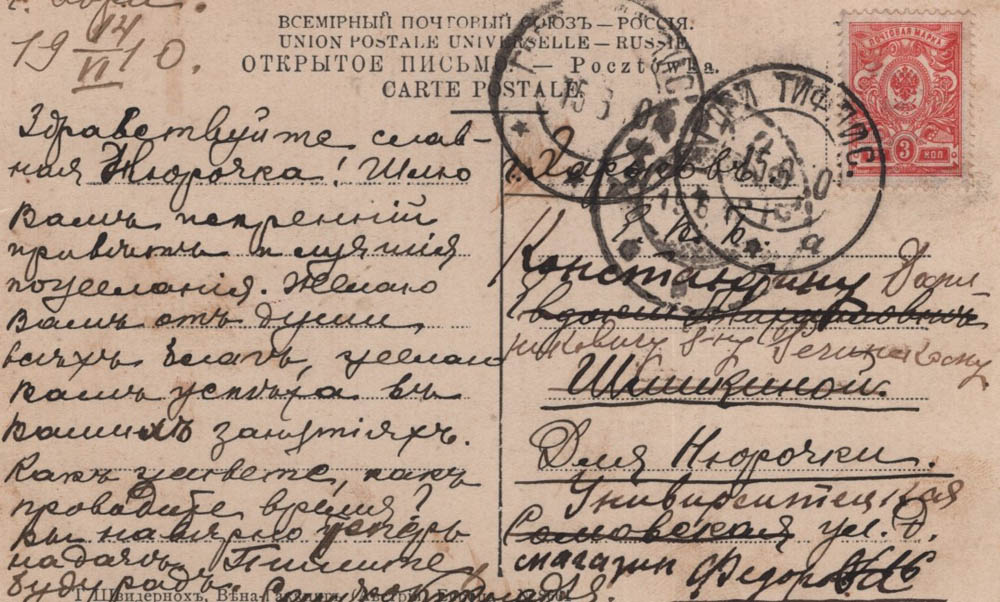 г. Гори.
19 14/VI 10.
ВСЕМІРНЫЙ ПОЧТОВЫЙ СОЮЗЪ — РОССІЯ.
UNION POSTALE UNIVERSELLE — RUSSIE
ОТКРЫТОЕ ПИСЬМО. — Pocztówka.
CARTE POSTALE
ПОЧТОВАЯ МАРКА
3 КОП
ГОРИ ТИФЛИС.
15.6
Здравствуйте слав-
ная Нюрочка! Шлю
Вамъ искренній
привѣтъ и лучшія
пожеланія. Желаю
Вамъ отъ души
всѣхъ благъ, желаю
Вамъ успѣха въ
Вашихъ занятіяхъ.
Какъ живете, какъ
проводите время?
Вы навѣрно теперь
на дачѣ. Пишите
буду радъ.
г. Харьковъ
Константину
Евдокіи Михайловнѣ
Шишкиной.
Для Нюрочки.
Университецкая
Сомовская ул. Д.
магазин Федорова
Г. Швидернохъ, Вѣна